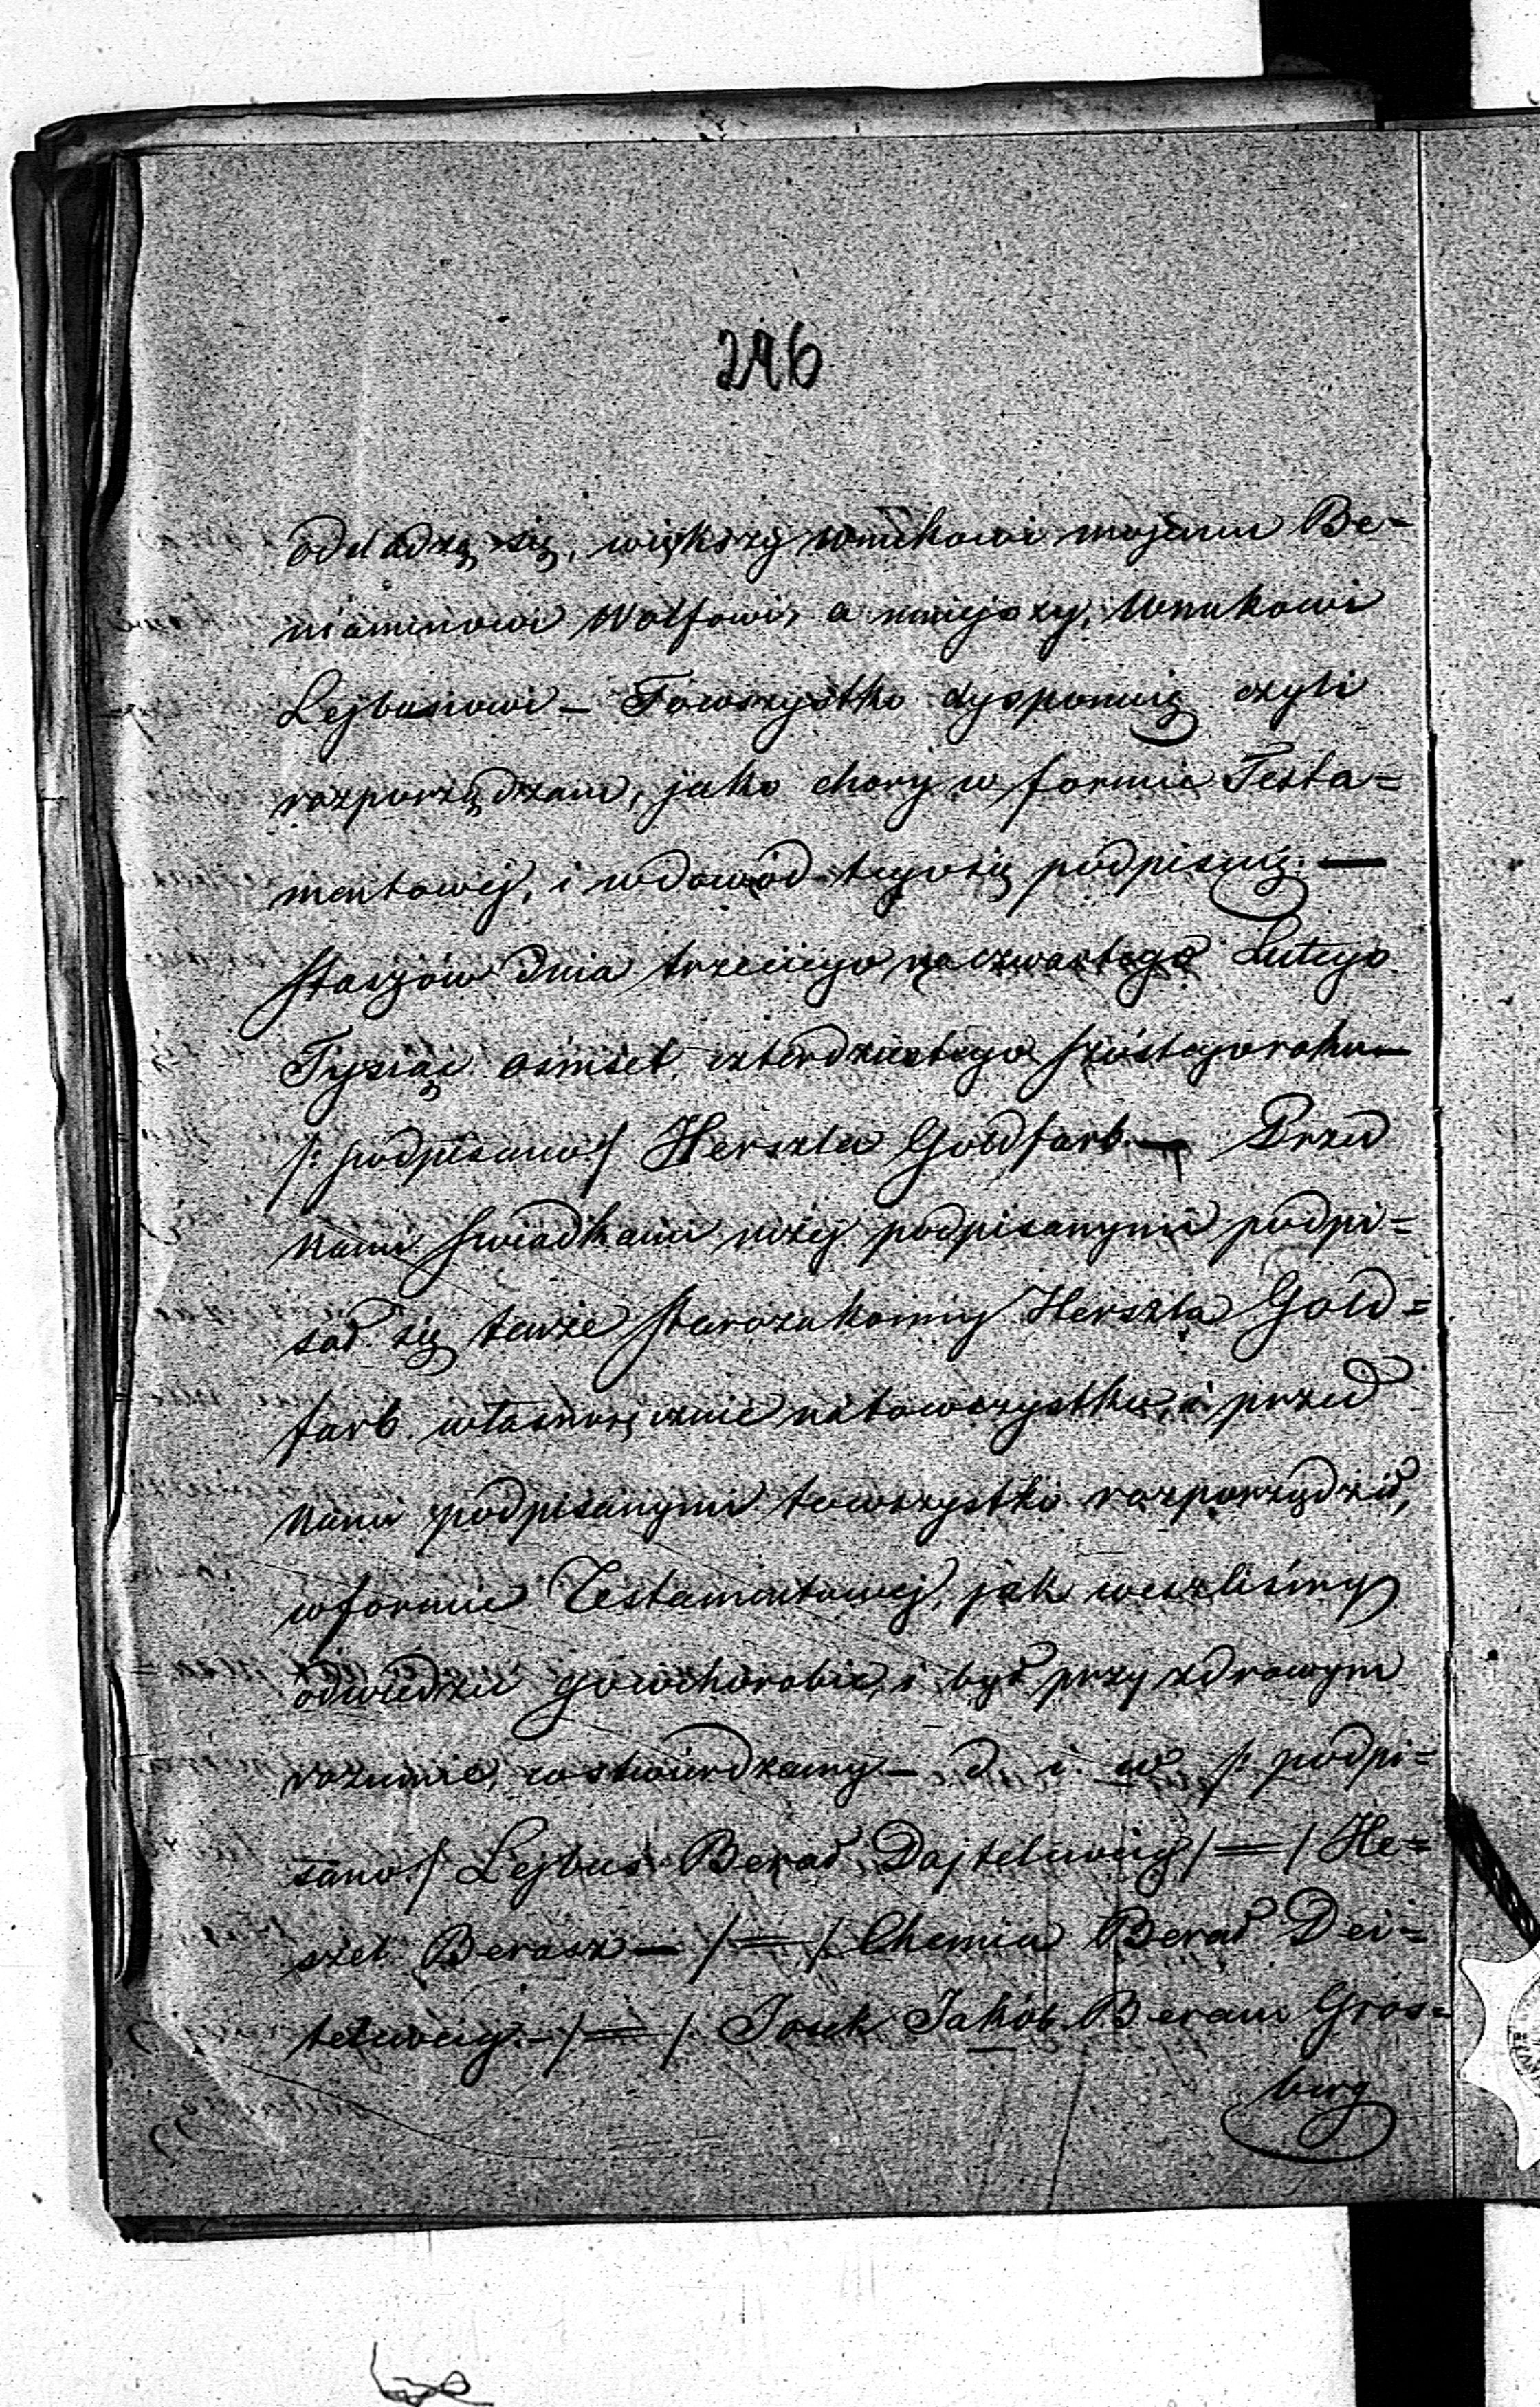 246
oddadzą się, większy wnukowi mojemu Be=
niaminowi Wolfowi, a mniejszy, Wnukowi
Lejbusiowi – Towszystko dysponuię czyli
rozporządzam, jako chory w formie Testa=
mentowej, i wdowód tegosię podpisuię. —
Staszów dnia trzeciego naczwartego Lutego
Tysiąc osmset czterdziestego szóstego roku —
/: podpisano / Herszla Goldfarb — Przed
Nami Swiadkami niżej podpisanymi podpi=
sał się tenże Starozakonny Herszla Gold=
farb własnoręcznie natowszystko, i przed
Nami podpisanymi towszystko rozporządził,
wformie Testamentowej, jak weszliśmy
odwiedzić gowchorobie, i był przy zdrowym
rozumie, costwierdzamy – d. i. w /: podpi=
sano / Lejbuś Berał Dajtelcweig / = / He=
rszel Berasz – / = / Chemia Berał Dei=
telcweig – / = / Josek Jakób Beram Gros=
berg